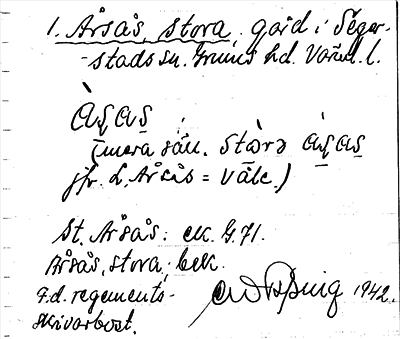 1. Årsås, stora, gård i Seger-
stads sn. Grums hd. Värml. l.
àşaş
(mera säll. stɷrə àşaş
jfr. L. Årsås = välc.)
St. Årsås: ek. G. 71.
Årsås, stora; bek.
F.d. regements-
skrivarbost.
1942.